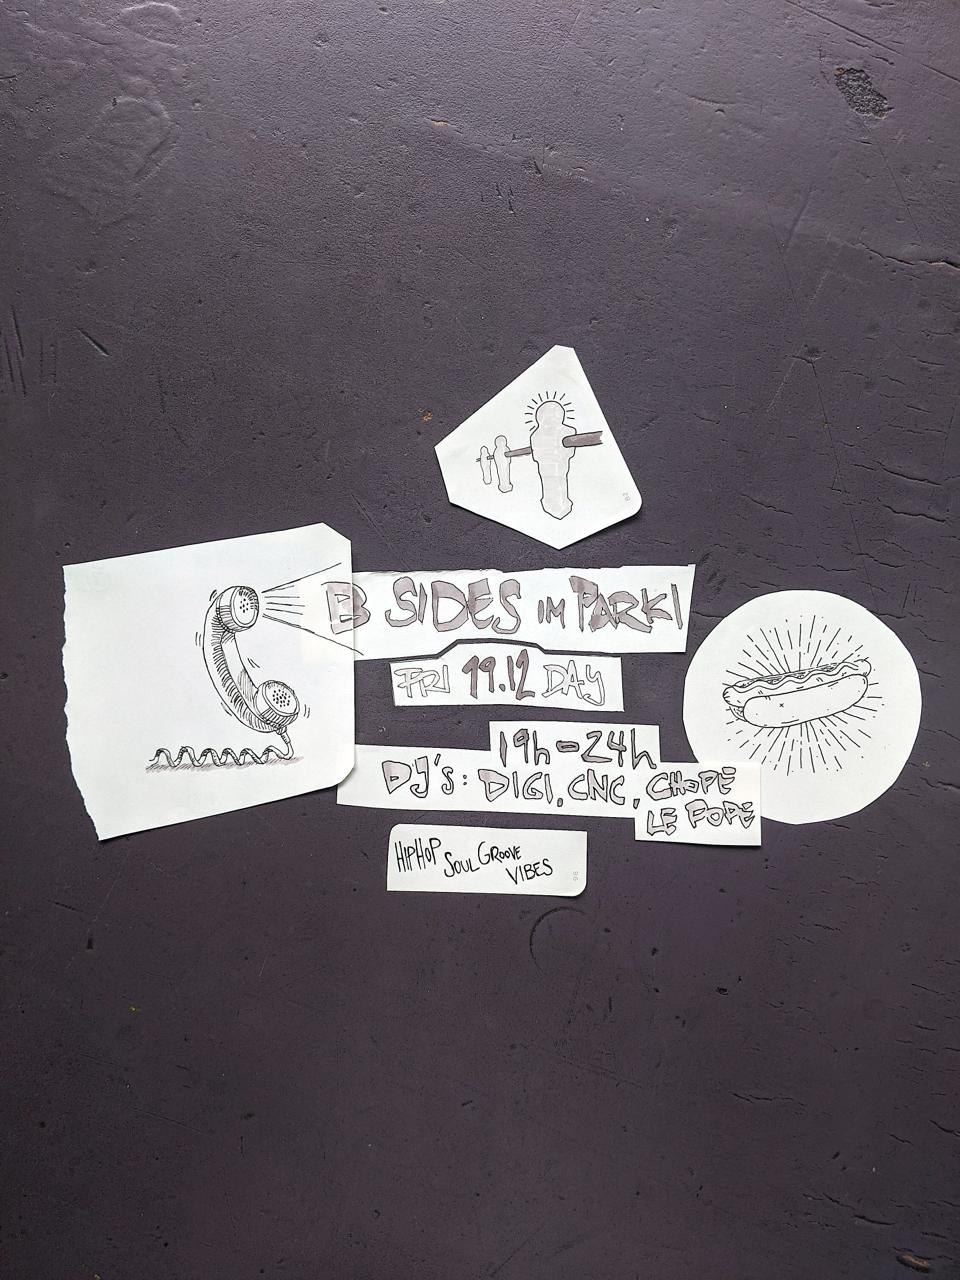 B SIDES IM PARKI
FRI 19.12 DAY
19h-24h
DJ's: DIGI, CNC, CHOPÉ
LE POPE
HIPHOP SOUL GROOVE
VIBES